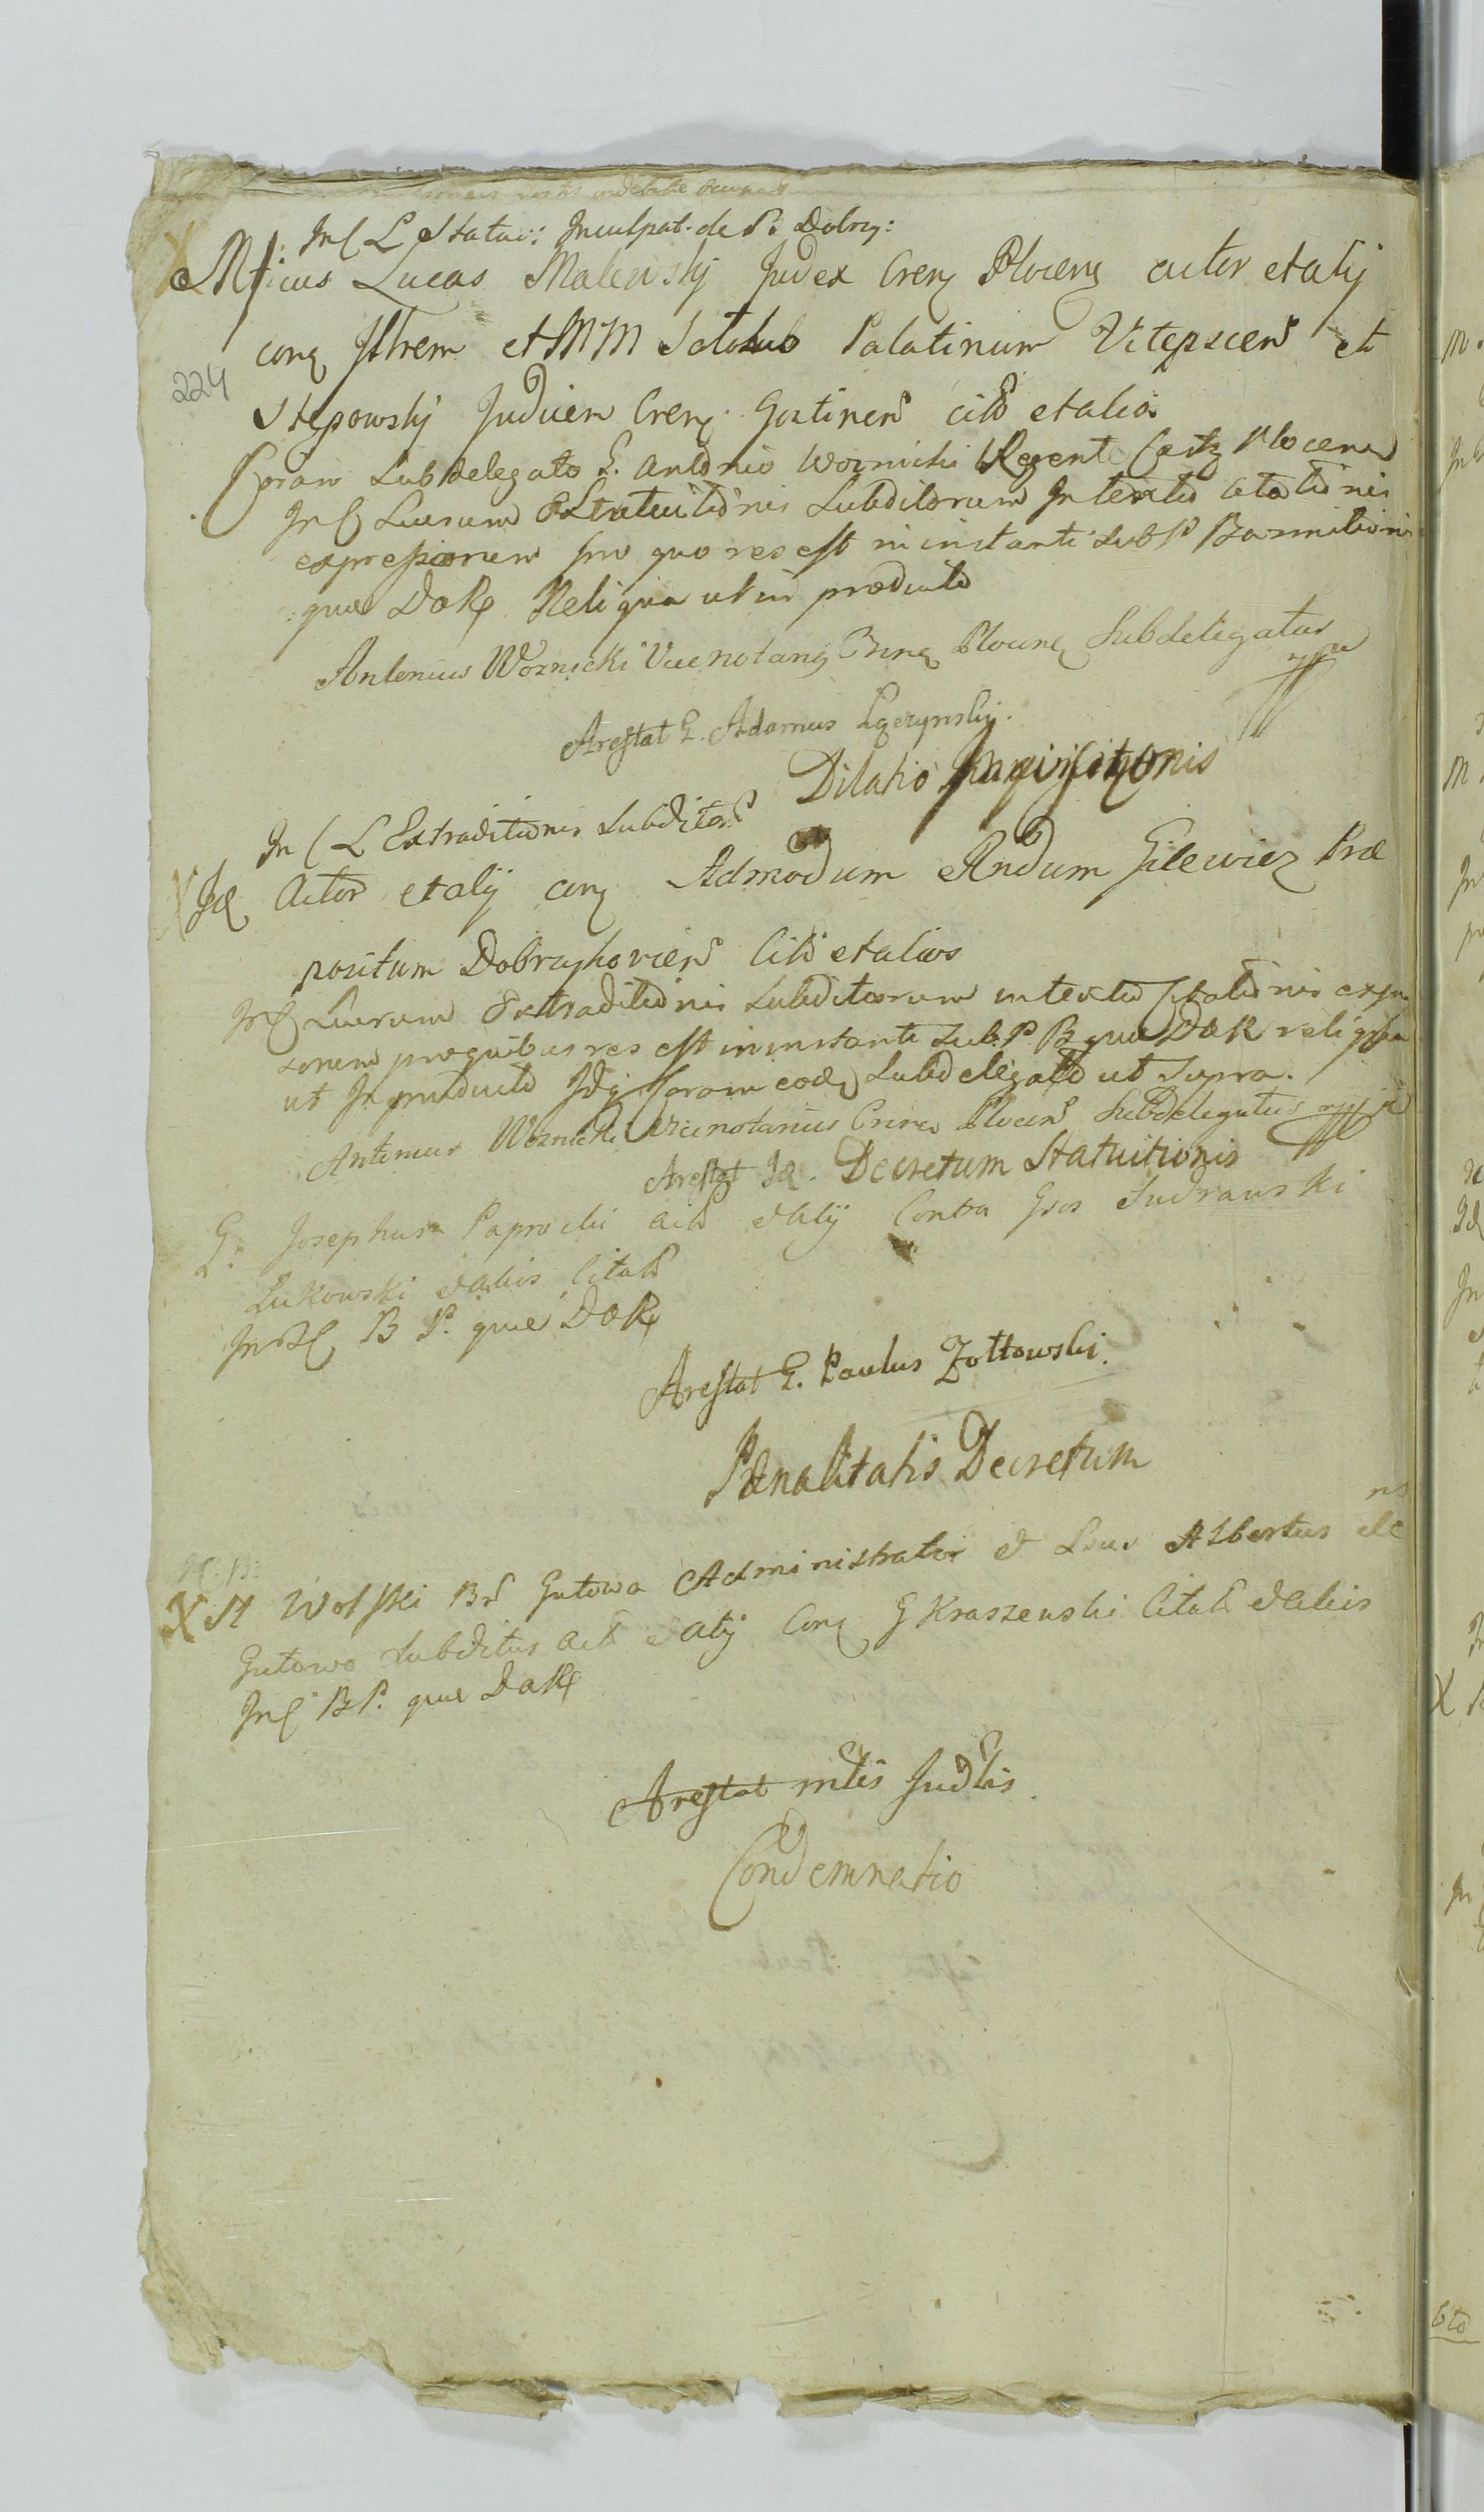 In C L Statui: Inculpat. de P. Dobrz:
Mficus Lucas Malewskj Judex Cren Plocen actor et alij
con Illrem et MM Solohub Palatinum Vitepscen et
224
Stępowskj Judicem Cren Gostinen cit et alios
Coram Subdelegato G. Antonio Woznicki Regente Cast Plocens
In C Lucrum Statuitionis Subditorum In textu Citationis
expressionem pro quo res est in instanti sub P Bannitionis
quae DaR Reliqua ut in producto
Antonius Woznicki Vicenotarius Plocens Subdelegatus
Arestat G. Adamus Łączynskj.
Dilatio Inquisitionis
In C L Extraditionis Subditor
X Id Actor et alij con Admodum Rndum Gilewicz Præ
positum Dobrzykovien Cit et alios
In C Lucrum Extraditionis Subditorum in textu Citationis expres
sionem pro quibus res est in instanti sub P B quae DaR reliqua
ut In producto Idq Coram eod Subdelegato ut supra.
Antonius Woznicki Vicenotarius Plocen Subdelegatus
Arestat Id. Decretum Statuitionis
G. Josephus Paprocki act et alij Contra Gsos Sudrawski
Łukowski et aliis Citat
In C B P. quae DaR
Arestat G. Paulus Zołtowski.
Pænalitatis Decretum
X St Wolski Br Gutowa Administrator et Albertus de
Gutowo Subditus act et alij Con G Kraszewski Citat et aliis
In C B P. quae DaR
Arestat mtis Judlis
Condemnatio